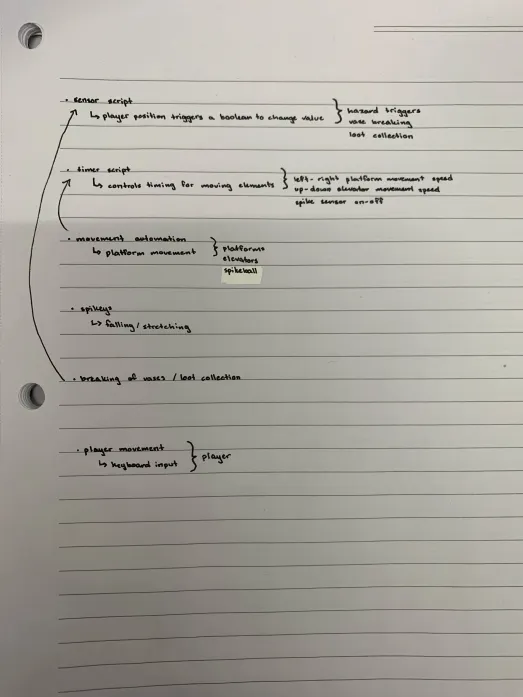 • sensor script
↳ player position triggers a boolean to change value
hazard triggers
vase breaking
loot collection
• timer script
↳ controls timing for moving elements
left-right platform movement speed
up-down elevator movement speed
spike sensor on-off
• movement automation
↳ platform movement
platforms
elevators
spikeball
• spikeys
↳ falling/stretching
• breaking of vases / loot collection
• player movement
↳ keyboard input
player